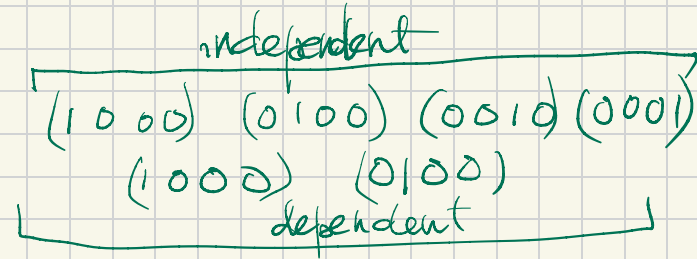 independent
(1 0 0 0) (0 1 0 0) (0 0 1 0) (0 0 0 1)
(1 0 0 0) (0 1 0 0)
dependent